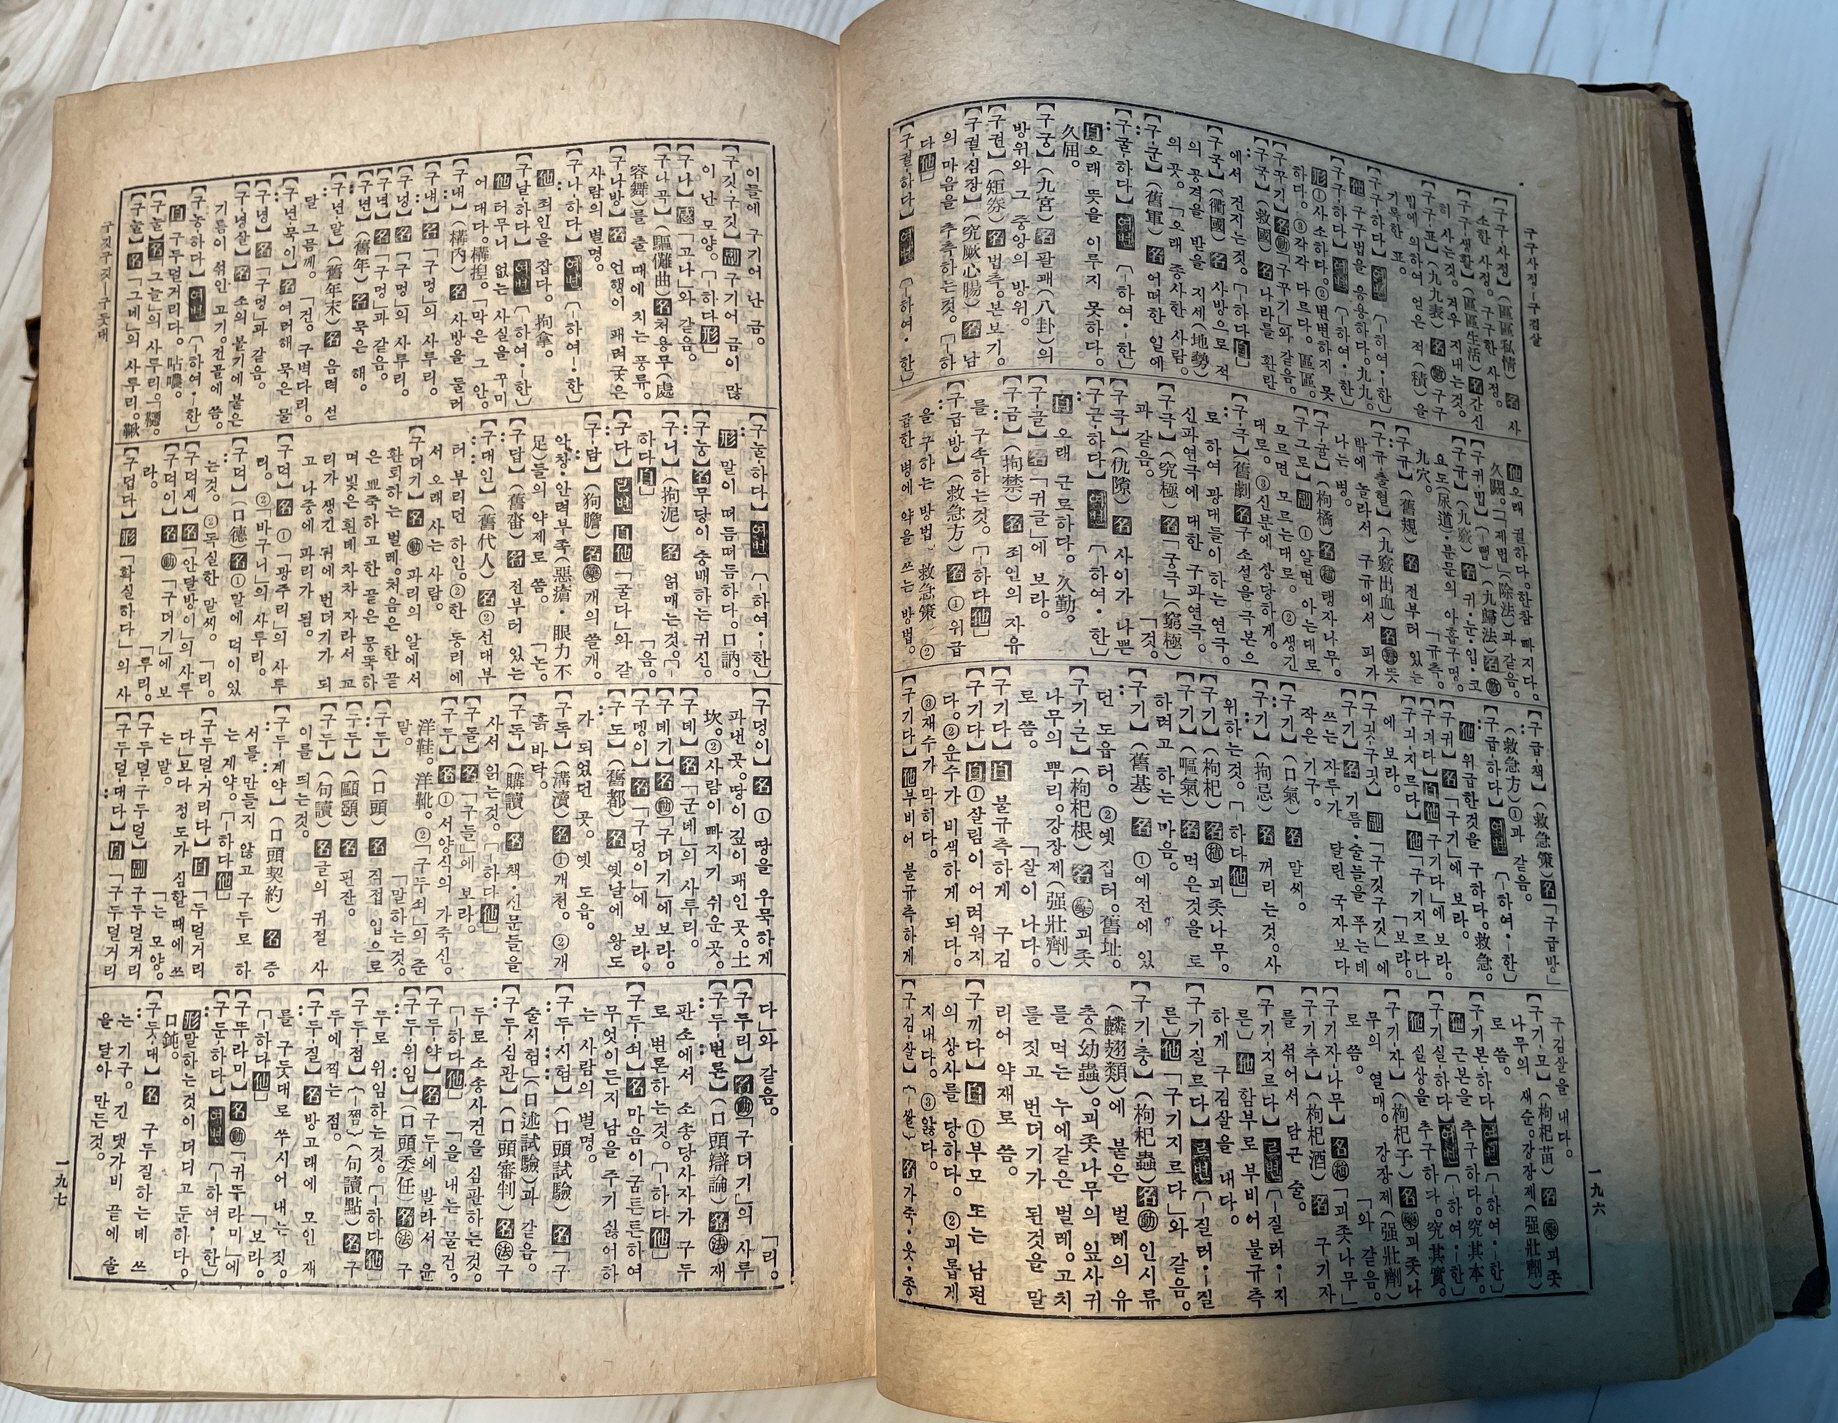 구구사정—구김살
【구구사정】(區區私情) 名 사
소한 사정。구구한 사정。
【구구생활】(區區生活) 名 간신
히 사는것。겨우 지내는것。
【구구표】(九九表) 名 數 구구
법에 의하여 얻은 적(積)을
기록한 표。
【구구하다】여변 「—하여·—한」
他 구구법을 응용하다。九九。
【구구하다】여변 「—하여·—한」
形 ①사소하다。②변변하지 못
하다。③각각 다르다。區區。
【구꾸기】名 動 「꾸꾸기」와 같음。
【구국】(救國) 名 나라를 환란
에서 전지는 것。「—하다 自」
【구국】(衢國) 名 사방으로 적
의 공격을 받을 지세(地勢)
의 곳。「오래 종사한 사람。
【구군】(舊軍) 名 어떠한 일에
【구굴하다】여변 「—하여·—한」
自 오래 뜻을 이루지 못하다。
久屈。
【구궁】(九宮) 名 팔괘(八卦)의
방위와 그 중앙의 방위。
【구권】(矩券) 名 법측。본보기。
【구궐심장】(究厥心腸) 名 남
의 마음을 추측하는것。「—하
다 他」
【구궐하다】여변 「—하여·—한」
他 오래 궐하다。한참 빠지다。
久闕。「제법」(除法)과 같음。
【구귀법】(—뻡)(九歸法) 名 數
【구규】(九竅) 名 귀·눈·입·코
요도(尿道)·분문의 아홉구멍。
九穴。「규측。
【구규】(舊規) 名 전부터 있는
【구규출혈】(九竅出血) 名 醫 뜻
밖에 놀라서 구규에서 피가
나는 병。
【구귤】(枸橘) 名 植 탱자나무。
【구그로】副 ①알면 아는대로
모르면 모르는대로。②생긴
대로。③신분에 상당하게。
【구극】(舊劇) 名 구소설을 극본으
로 하여 광대들이 하는 연극。
신파연극에 대한 구파연극。
【구극】(究極) 名 「궁극」(窮極)
과 같음。「것。
【구극】(仇隙) 名 사이가 나쁜
【구근하다】여변 「—하여·—한」
自 오래 근로하다。久勤。
【구글】名 「귀글」에 보라。
【구금】(拘禁) 名 죄인의 자유
를 구속하는것。「—하다 他」
【구급방】(救急方) 名 ①위급
을 구하는 방법。救急策。②
급한 병에 약을 쓰는 방법。
【구급책】(救急策) 名 「구급방」
(救急方)①과 같음。
【구급하다】여변 「—하여·—한」
他 위급한것을 구하다。救急。
【구긔】名 「구기」에 보라。
【구긔다】自他 「구기다」에 보라。
【구긔지르다】他 「구기지르다」
에 보라。「보라。
【구깃구깃】副 「구깃구깃」에
【구기】名 기름·술들을 푸는데
쓰는 자루가 달린 국자보다
작은 기구。
【구기】(口氣) 名 말씨。
【구기】(拘忌) 名 꺼리는것。사
위하는것。「—하다 他」
【구기】(枸杞) 名 植 괴좃나무。
【구기】(嘔氣) 名 먹은것을 토
하려고 하는 마음。
【구기】(舊基) 名 ①예전에 있
던 도읍터。②옛 집터。舊址。
【구기근】(枸杞根) 名 藥 괴좃
나무의 뿌리。강장제(强壯劑)
로 씀。「살이 나다。
【구기다】自 불규측하게 구김
【구기다】自 ①살림이 어려워지
다。②운수가 비색하게 되다。
③재수가 막히다。
【구기다】他 부비어 불규측하게
구김살을 내다。
【구기묘】(枸杞苗) 名 藥 괴좃
나무의 새순。강장제(强壯劑)
로 씀。
【구기본하다】여변 「—하여·—한」
他 근본을 추구하다。究其本。
【구기실하다】여변 「—하여·—한」
他 실상을 추구하다。究其實。
【구기자】(枸杞子) 名 藥 괴좃나
무의 열매。강장제(强壯劑)
로 씀。「와 같음。
【구기자나무】名 植 「괴좃나무」
【구기자주】(枸杞酒) 名 구기자
를 섞어서 담근 술。
【구기지르다】르변 「—질러·—지
른」他 함부로 부비어 불규측
하게 구김살을 내다。
【구기질르다】르변 「—질러·—질
른」他 「구기지르다」와 같음。
【구기충】(枸杞蟲) 名 動 인시류
(鱗翅類)에 붙은 벌레의 유
충(幼蟲)。괴좃나무의 잎사귀
를 먹는 누에같은 벌레。고치
를 짓고 번더기가 된것을 말
리어 약재로 씀。
【구끼다】自 ①부모 또는 남편
의 상사를 당하다。②괴롭게
지내다。③앓다。
【구김살】(—쌀) 名 가죽·옷·종
一九六
구깃구깃—구둣대
이들에 구기어 난 금。
【구깃구깃】副 구기어 금이 많
이 난 모양。「—하다 形」
【구나】感 「고나」와 같음。
【구나곡】(驅儺曲) 名 처용무(處
容舞)를 출 때에 치는 풍류。
【구나방】名 언행이 쾌려궂은
사람의 별명。
【구나하다】여변 「—하여·—한」
他 죄인을 잡다。拘拿。
【구날하다】여변 「—하여·—한」
他 터무니 없는 사실을 꾸미
어 대다。構捏。「막은 그 안。
【구내】(構內) 名 사방을 둘러
【구내】名 「구멍」의 사투리。
【구녕】名 「구멍」의 사투리。
【구녁】名 「구멍」과 같음。
【구년】(舊年) 名 묵은 해。
【구년말】(舊年末) 名 음력 섣
말 그믐께。「건。구벽다리。
【구년묵이】名 여러해 묵은 물
【구녕】名 「구멍」과 같음。
【구녕살】名 소의 볼기에 붙은
기름이 섞인 고기。전골에 씀。
【구농하다】여변 「—하여·—한」
自 구두덜거리다。呫噥。
【구눌】名 「그늘」의 사투리。
【구눌】名 「그네」의 사투리。
【구눌하다】여변 「—하여·—한」
形 말이 떠듬떠듬하다。口訥。
【구눙】名 무당이 중배하는 귀신。
【구니】(拘泥) 名 얽매는것。「—
하다 自」「음。
【구다】ㄹ변 自他 「굴다」와 같
【구담】(狗膽) 名 藥 개의 쓸개。
악창·안력부족(惡瘡·眼力不
足)들의 약제로 씀。「논。
【구답】(舊畓) 名 전부터 있는
【구대인】(舊代人) 名 ①선대부
터 부리던 하인。②한 동리에
서 오래 사는 사람。
【구더기】名 動 파리의 알에서
환퇴하는 벌레。처음은 한 끝
은 뾰죽하고 한 끝은 뭉뚝하
며 빛은 흰데 차차 자라서 꼬
리가 생긴 뒤에 번더기가 되
고 나중에 파리가 됨。
【구덕】名 ①「광주리」의 사투
리。②「바구니」의 사투리。
【구덕】(口德) 名 ①말에 덕이 있
는것。②독실한 말씨。「리。
【구덕새】名 「안달방이」의 사투
【구덕이】名 動 「구더기」에 보
라。「루리。
【구덥다】形 「확실하다」의 사
【구덩이】名 ①땅을 우묵하게
파낸곳。땅이 깊이 패인곳。土
坎。②사람이 빠지기 쉬운곳。
【구데】名 「군데」의 사투리。
【구데기】名 動 「구더기」에 보라。
【구뎅이】名 「구덩이」에 보라。
【구도】(舊都) 名 옛날에 왕도
가 되었던 곳。옛 도읍。
【구독】(溝瀆) 名 ①개천。②개
흙 바닥。
【구독】(購讀) 名 책·신문들을
사서 읽는것。「—하다 他」
【구돌】名 「구들」에 보라。
【구두】名 ①서양식의 가죽신。
洋鞋。洋靴。②「구두쇠」의 준
말。「말하는것。
【구두】(口頭) 名 직접 입으로
【구두】(甌頭) 名 핀잔。
【구두】(句讀) 名 글의 귀절 사
이를 띄는것。
【구두계약】(口頭契約) 名 증
서를 만들지 않고 구두로 하
는 계약。「—하다 他」
【구두덜거리다】自 「두덜거리
다」보다 정도가 심할 때에 쓰
는 말。「는 모양。
【구두덜구두덜】副 구두덜거리
【구두덜대다】自 「구두덜거리
다」와 같음。「리。
【구두리】名 動 「구더기」의 사투
【구두변론】(口頭辯論) 名 法 재
판소에서 소송당사자가 구두
로 변론하는것。「—하다 他」
【구두쇠】名 마음이 굳튼튼하여
무엇이든지 남을 주기 싫어하
는 사람의 별명。
【구두시험】(口頭試驗) 名 「구
술시험」(口述試驗)과 같음。
【구두심판】(口頭審判) 名 法 구
두로 소송사건을 심판하는것。
「—하다 他」「을 내는 물건。
【구두약】名 구두에 발라서 윤
【구두위임】(口頭委任) 名 法 구
두로 위임하는것。「—하다 他」
【구두점】(—쩜)(句讀點) 名 구
두에 찍는 점。
【구두질】名 방고래에 모인 재
를 구둣대로 쑤시어 내는 짓。
「—하다 他」「보라。
【구뚜라미】名 動 「귀뚜라미」에
【구둔하다】여변 「—하여·—한」
形 말하는것이 더디고 둔하다。
口鈍。
【구둣대】名 구두질하는데 쓰
는 기구。긴 댓가비 끝에 솔
을 달아 만든것。
一九七